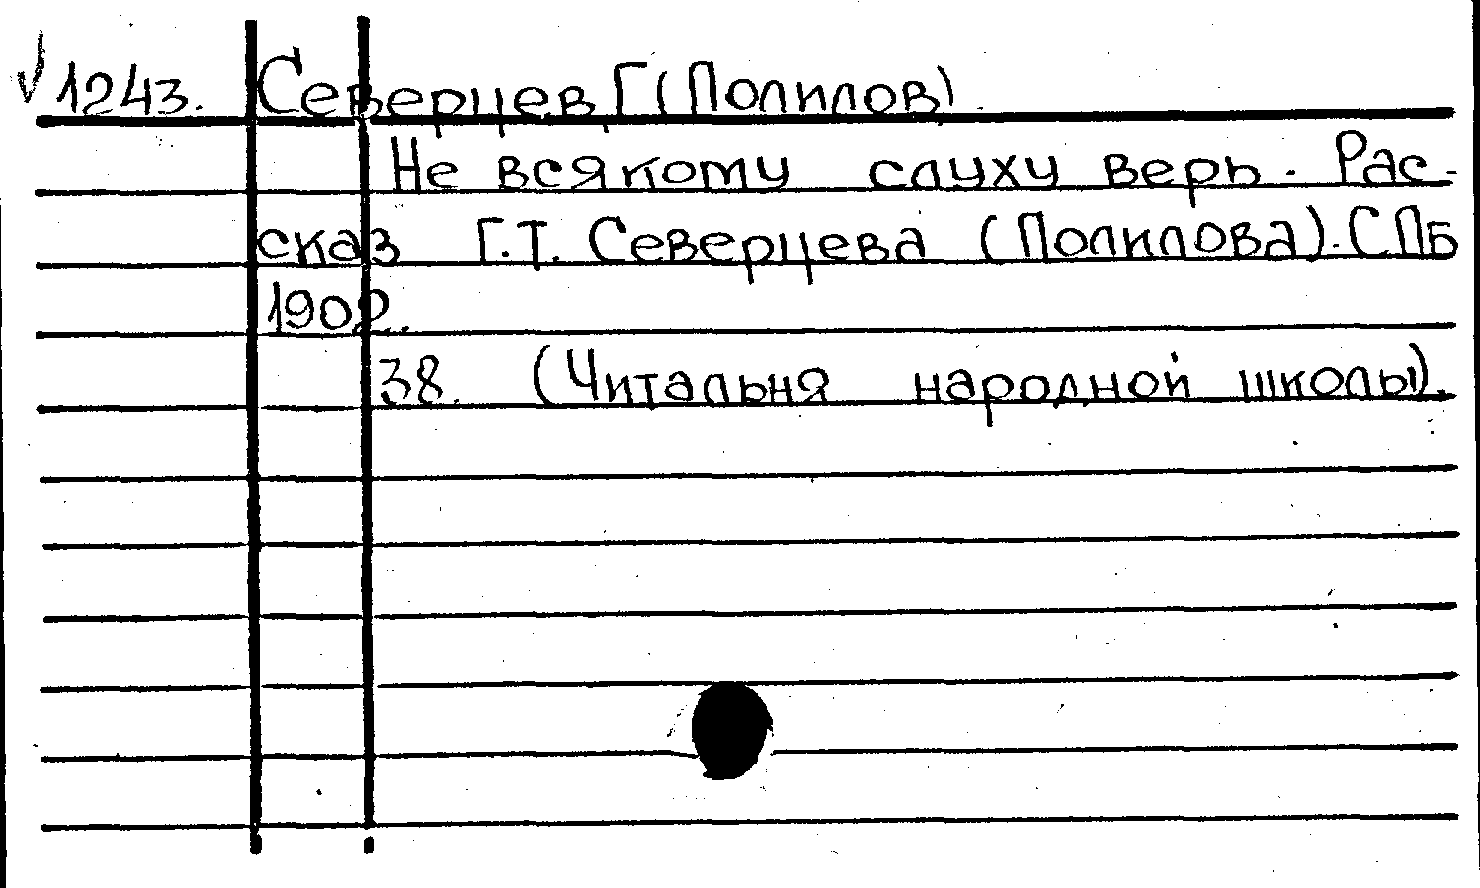 √1243. Северцев, Г (Полилов).
Не всякому слуху верь. Рас-
сказ Г.Т. Северцева (Полилова). СПБ
1902.
38. (Читальня народной школы).